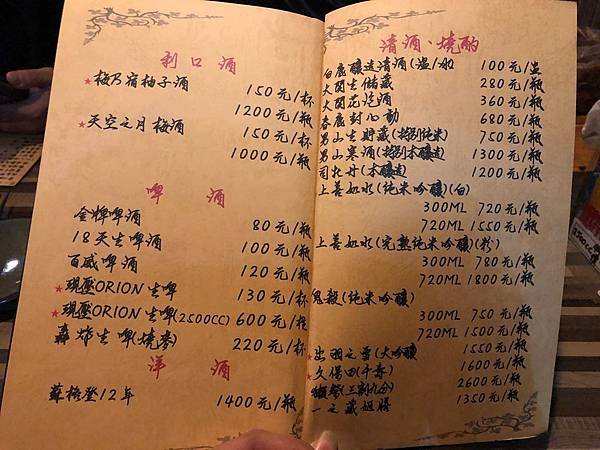 利口酒
★梅乃宿柚子酒
150元/杯
1200元/瓶
★天空之月梅酒
150元/杯
1000元/瓶
啤酒
金牌啤酒 80元/瓶
18天生啤酒 100元/瓶
百威啤酒 120元/瓶
★現壓ORION生啤 130元/杯
★現壓ORION生啤(2500CC) 600元/桶
轟炸生啤(燒麥) 220元/杯
洋酒
蘇格登12年 1400元/瓶
清酒、燒酌
白鹿釀造清酒(溫/冰) 100元/壺
大關生儲藏 280元/瓶
大關花泡酒 360元/瓶
春鹿封心動 680元/瓶
男山生貯藏(特別純米) 750元/瓶
男山寒酒(特別本釀造) 1300元/瓶
司牡丹(本釀造) 1200元/瓶
上善如水(純米吟釀)(白)
300ML 720元/瓶
720ML 1550元/瓶
上善如水(完熟純米吟釀)(粉)
300ML 780元/瓶
720ML 1800元/瓶
鬼殺(純米吟釀)
300ML 750元/瓶
720ML 1500元/瓶
★出羽之雪(大吟釀) 1550元/瓶
★久保田(千壽) 1600元/瓶
★獺祭(三割九分) 2600元/瓶
一之藏 1350元/瓶